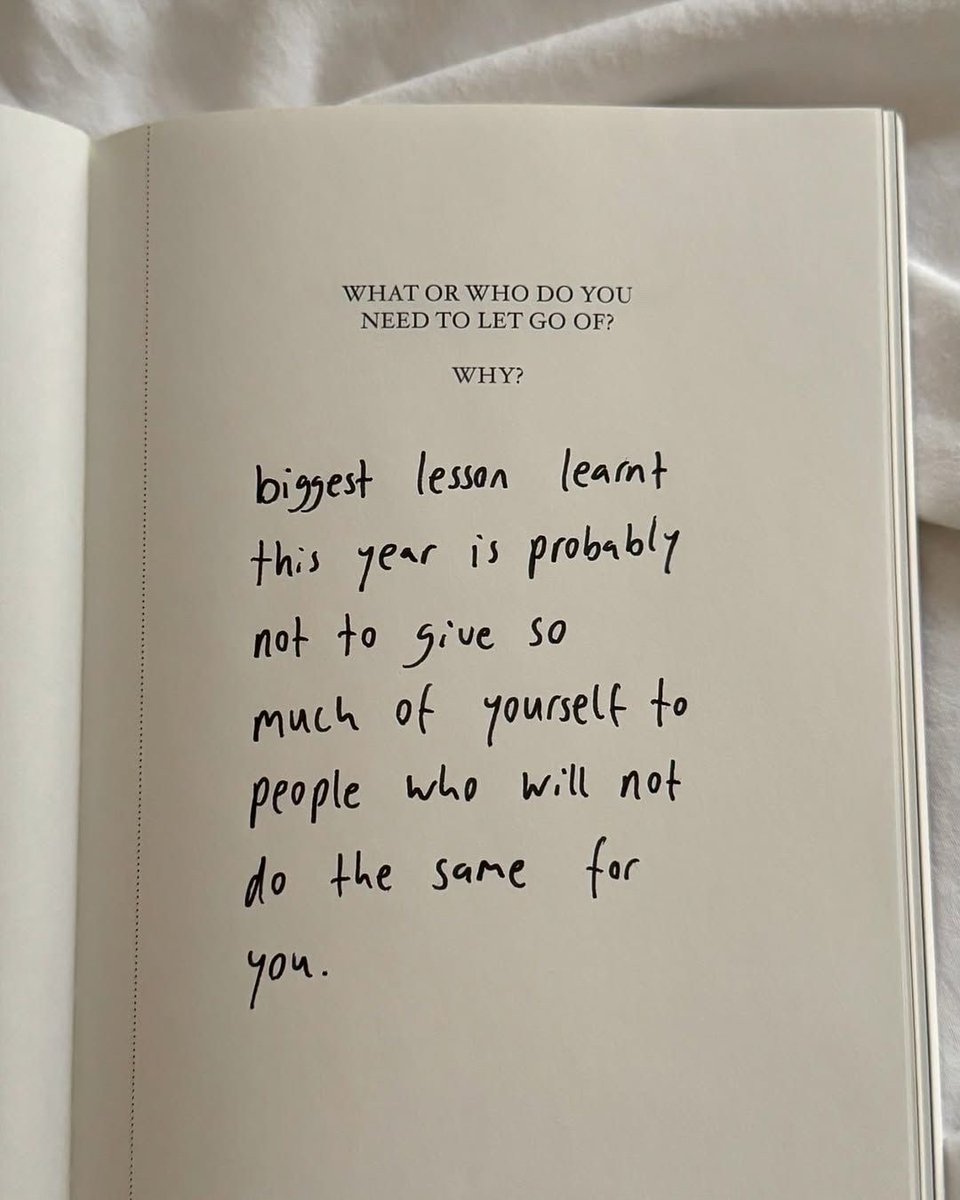 WHAT OR WHO DO YOU
NEED TO LET GO OF?
WHY?
biggest lesson learnt
this year is probably
not to give so
much of yourself to
people who will not
do the same for
you.